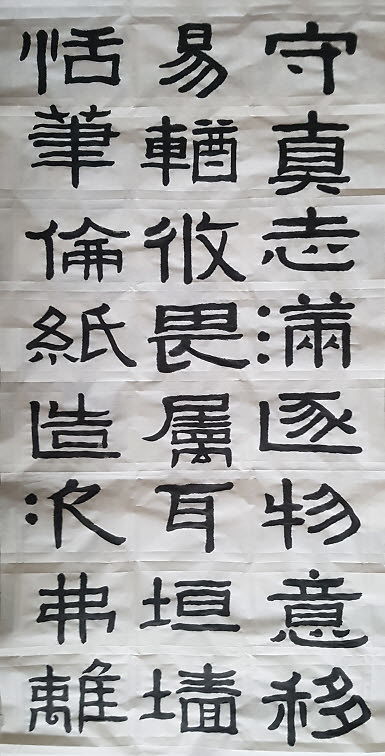 守真志滿逐物意移
易輶攸畏屬耳垣墻
恬筆倫紙造次弗離